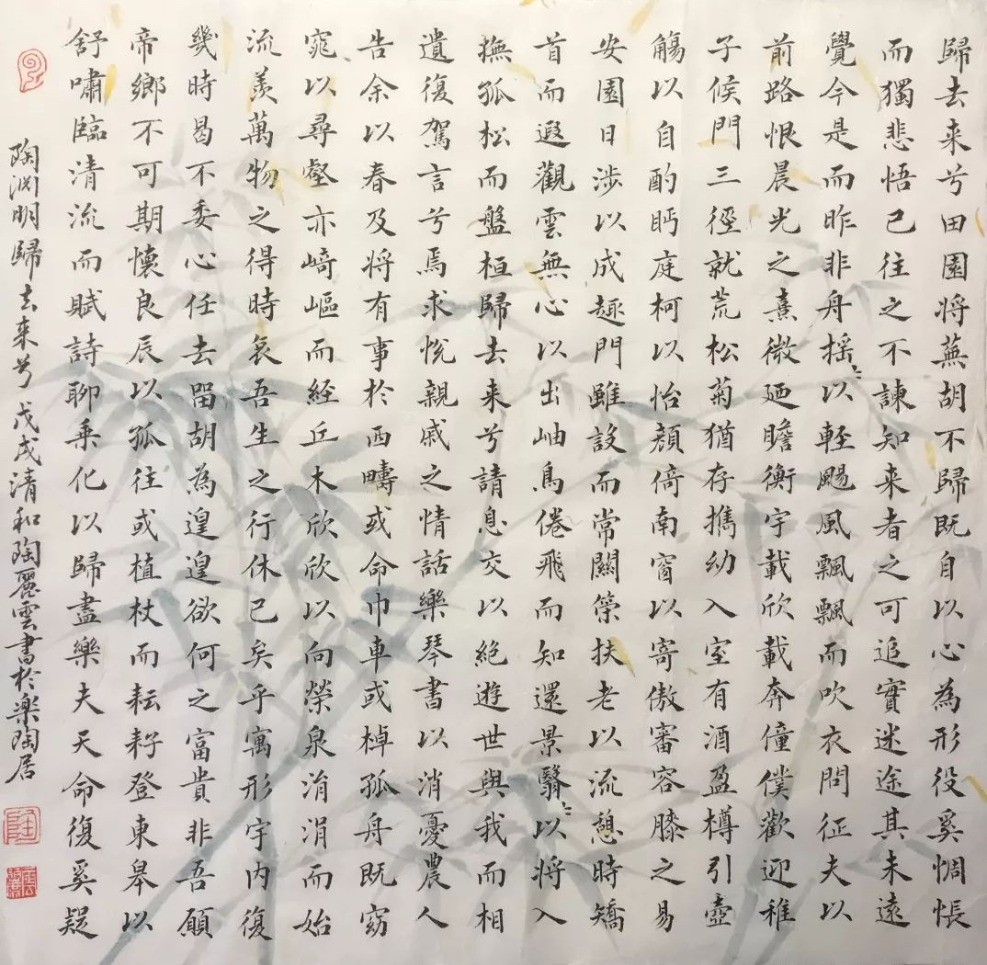 歸去来兮田園将蕪胡不歸既自以心為形役奚惆悵
而獨悲悟已往之不諫知来者之可追實迷途其未遠
覺今是而昨非舟揺〻以軽颺風飄飄而吹衣問征夫以
前路恨晨光之熹微廼瞻衡宇載欣載奔僮僕歡迎稚
子候門三徑就荒松菊猶存攜幼入室有酒盈樽引壺
觴以自酌眄庭柯以怡顏倚南窗以寄傲審容膝之易
安園日涉以成趣門雖設而常關策扶老以流憩時矯
首而遐觀雲無心以出岫鳥倦飛而知還景翳〻以将入
撫孤松而盤桓歸去来兮請息交以絕遊世與我而相
遺復駕言兮焉求悅親戚之情話樂琴書以消憂農人
告余以春及将有事於西疇或命巾車或棹孤舟既窈
窕以尋壑亦崎嶇而經丘木欣欣以向榮泉涓涓而始
流羨萬物之得時哀吾生之行休已矣乎寓形宇内復
幾時曷不委心任去畱胡為遑遑欲何之富貴非吾願
帝鄉不可期懷良辰以孤往或植杖而耘耔登東皋以
舒嘯臨清流而賦詩聊乘化以歸盡樂夫天命復奚疑
陶渊明歸去来兮戊戌清和陶麗雲書於樂陶居
陶